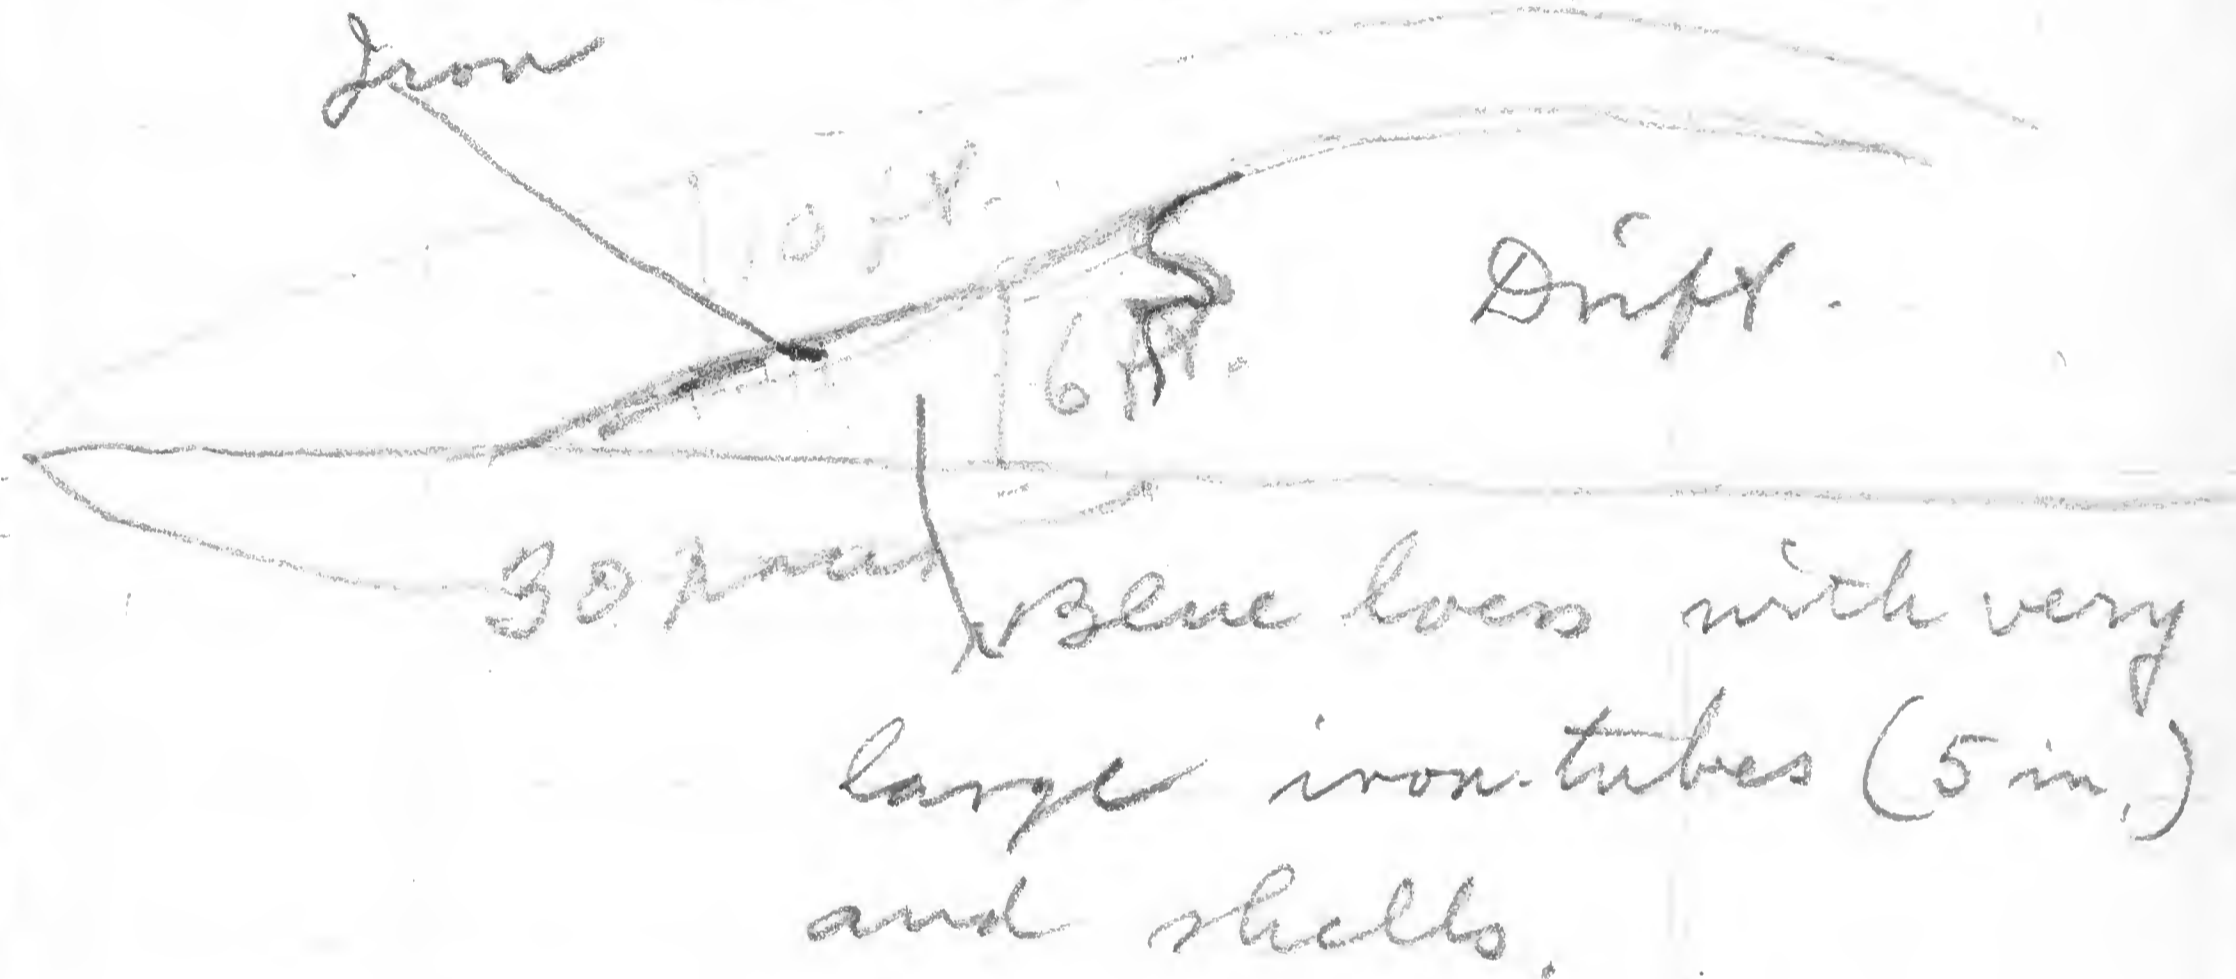 Iron
10 ft.
Drift.
6 ft.
30 paces
Blue loess with very
large iron-tubes (5 in.)
and shells.